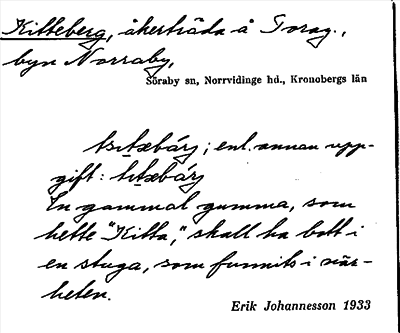 Kitteberg, åkerträda å Torag.,
byn Norraby,
Söraby sn, Norrvidinge hd., Kronobergs län
enl. annan upp-
gift:
En gammal gumma, som
hette "Kitta," skall ha bott i
en stuga, som funnits i när-
heten.
Erik Johannesson 1933